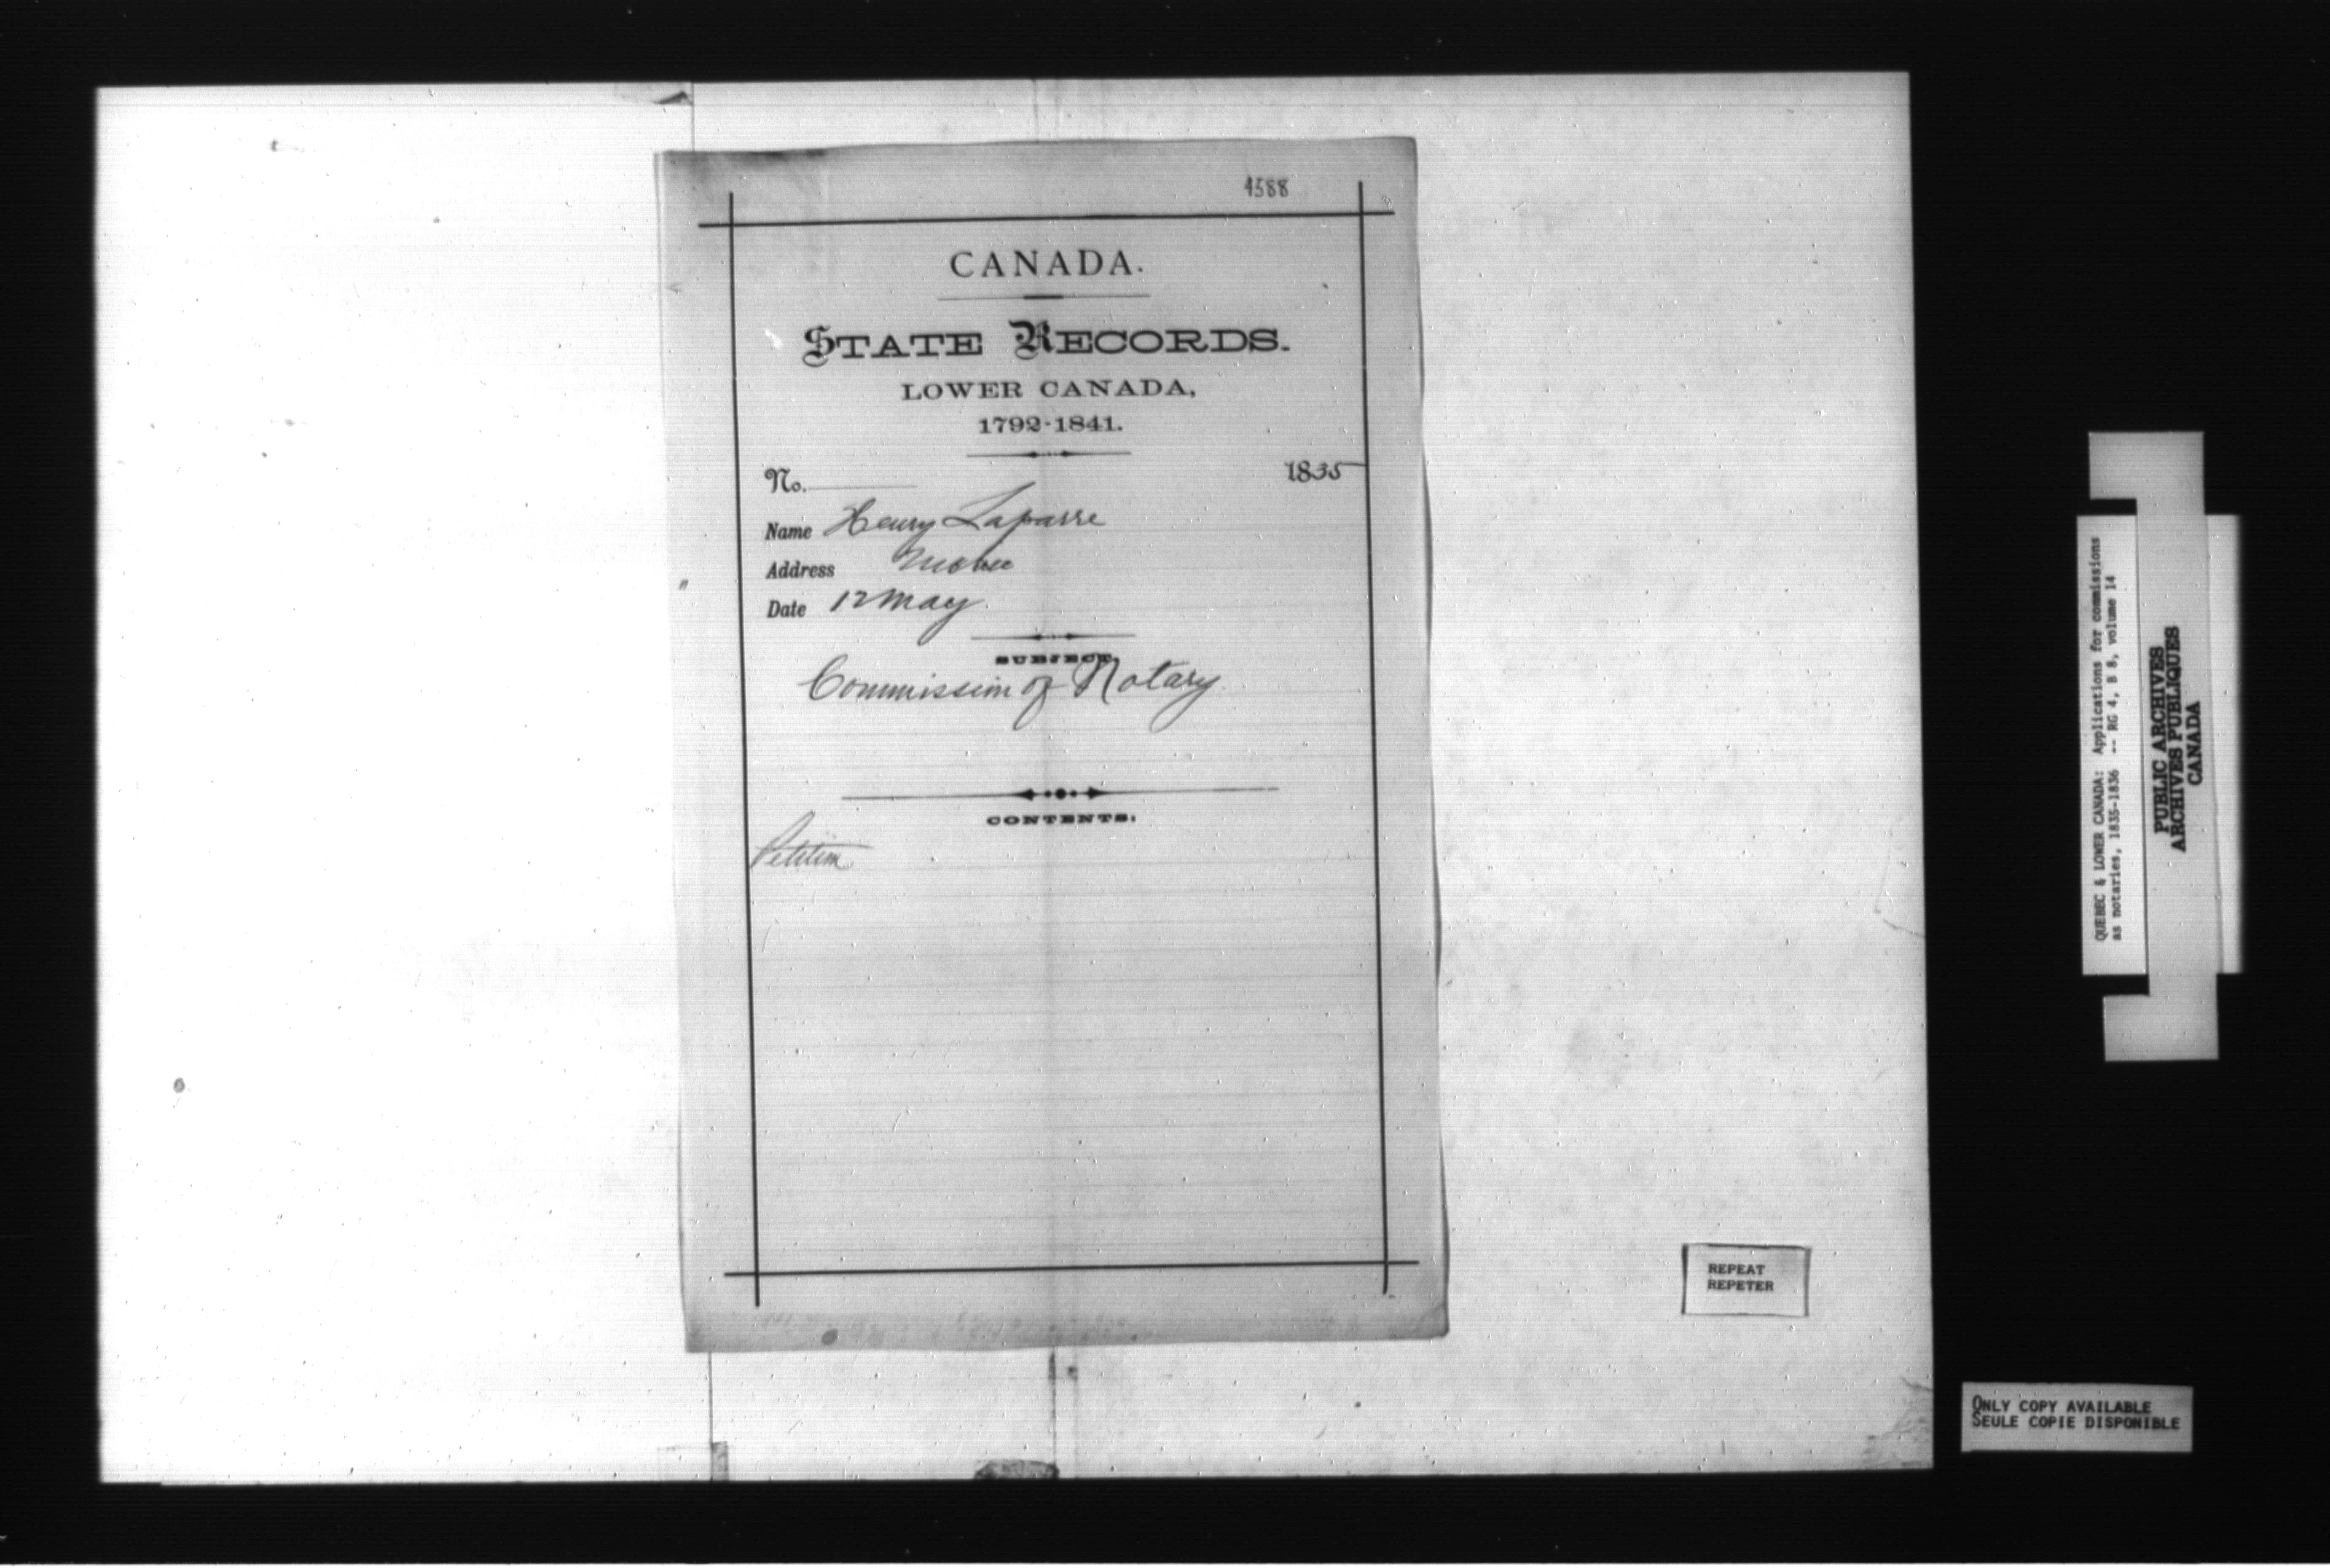 4588
CANADA.
STATE RECORDS.
LOWER CANADA,
1792-1841.
No. 1835
Name Henry Laparre
Address
Date 12 May.
SUBJECT
Commission of Notary.
CONTENTS:
Petition
QUEBEC & LOWER CANADA: Applications for commissions
as notaries, 1835-1836 -- RG 4, B 8, volume 14
PUBLIC ARCHIVES
ARCHIVES PUBLIQUES
CANADA
REPEAT
REPETER
ONLY COPY AVAILABLE
SEULE COPIE DISPONIBLE